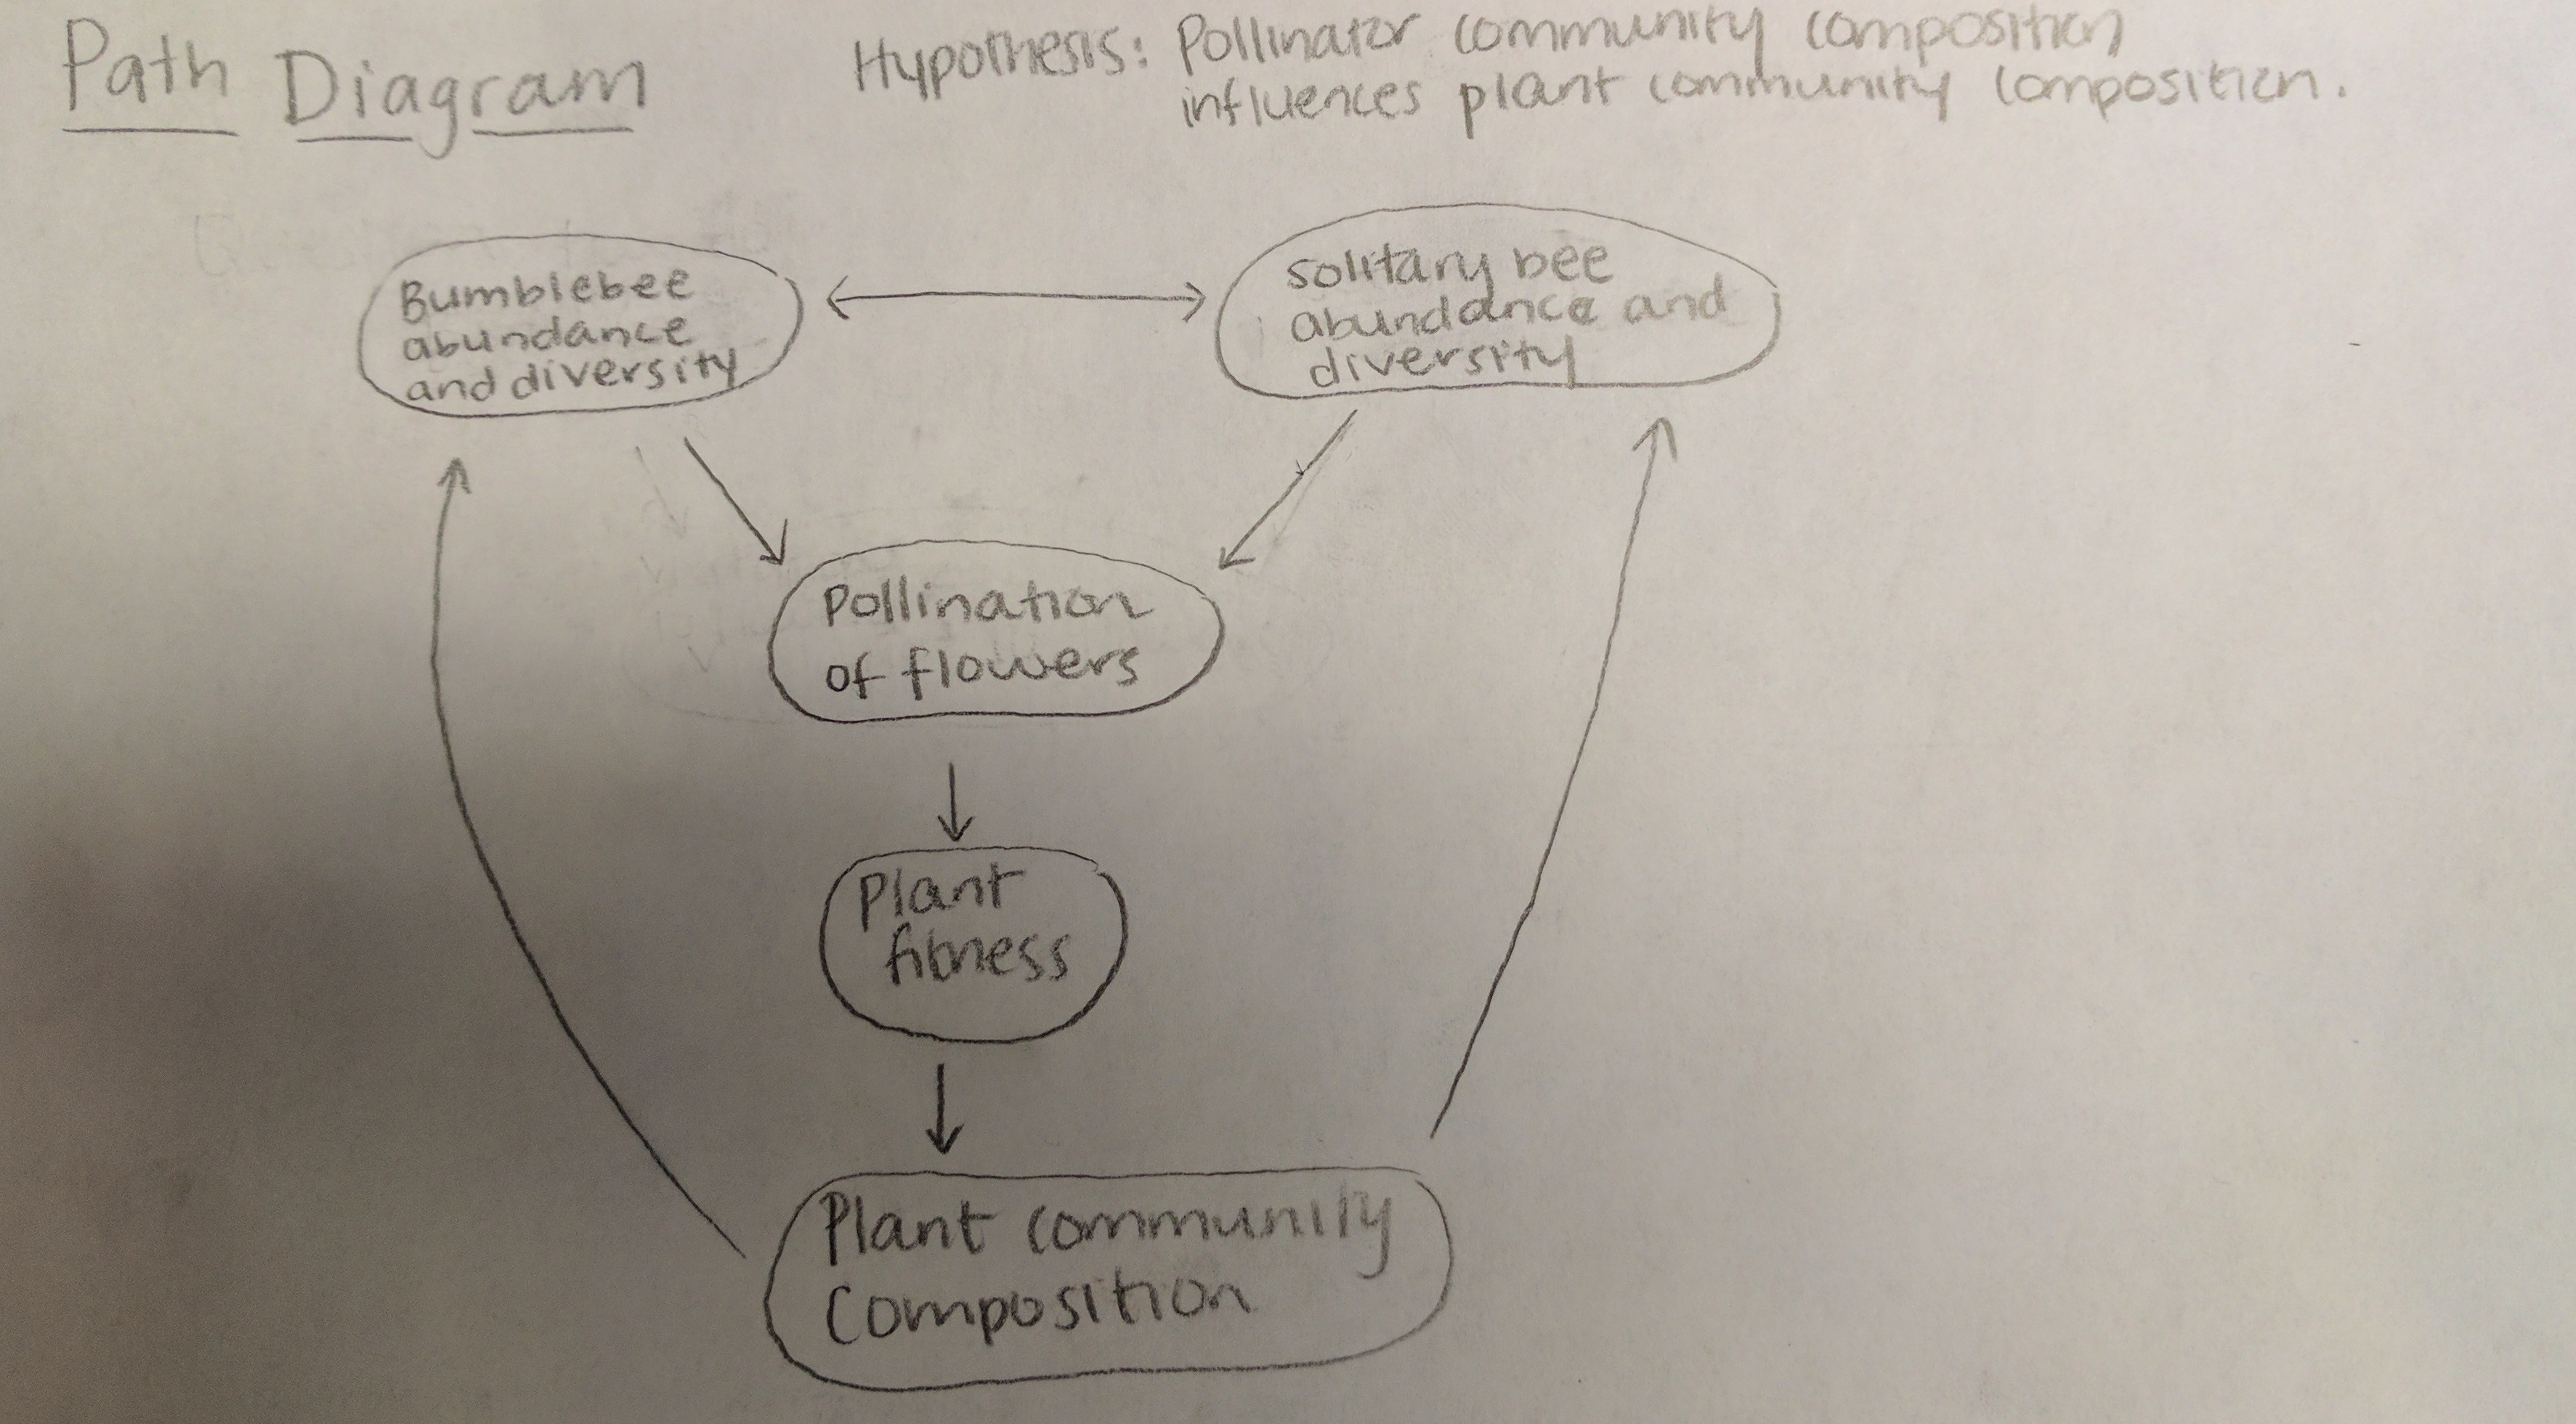 Path Diagram
Hypothesis: Pollinator community composition
influences plant community composition.
Bumblebee
abundance
and diversity
solitary bee
abundance and
diversity
Pollination
of flowers
Plant
fitness
Plant community
Composition